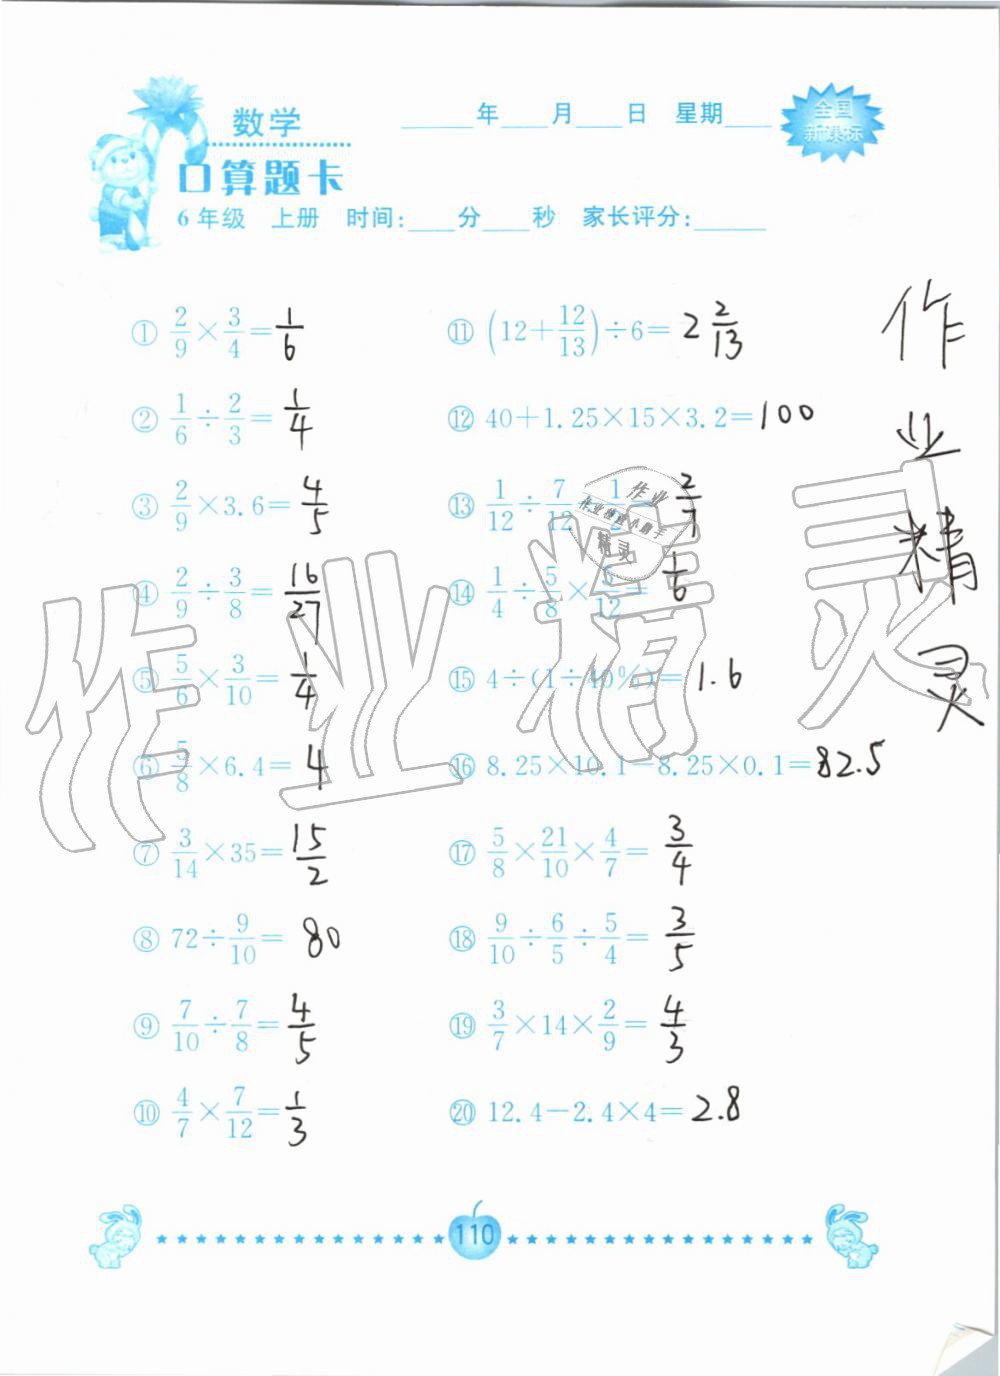 数学
口算题卡
____年____月____日 星期____
全国
新课标
6年级 上册 时间:____分____秒 家长评分:______
① 2/9 × 3/4 = 1/6
② 1/6 ÷ 2/3 = 1/4
③ 2/9 × 3.6 = 4/5
④ 2/9 ÷ 3/8 = 16/27
⑤ 5/6 × 3/10 = 1/4
⑥ 5/8 × 6.4 = 4
⑦ 3/14 × 35 = 15/2
⑧ 72 ÷ 9/10 = 80
⑨ 7/10 ÷ 7/8 = 4/5
⑩ 4/7 × 7/12 = 1/3
⑪ (12 + 12/13) ÷ 6 = 2 2/13
⑫ 40 + 1.25 × 15 × 3.2 = 100
⑬ 1/12 ÷ 7/12 ÷ 1/2 = 2/7
⑭ 1/4 ÷ 5/8 × 5/12 = 1/6
⑮ 4 ÷ (1 ÷ 40%) = 1.6
⑯ 8.25 × 10.1 − 8.25 × 0.1 = 82.5
⑰ 5/8 × 21/10 × 4/7 = 3/4
⑱ 9/10 ÷ 6/5 ÷ 5/4 = 3/5
⑲ 3/7 × 14 × 2/9 = 4/3
⑳ 12.4 − 2.4 × 4 = 2.8
作
业
精
灵
作业精灵
作业
作业检查小助手
精灵
110